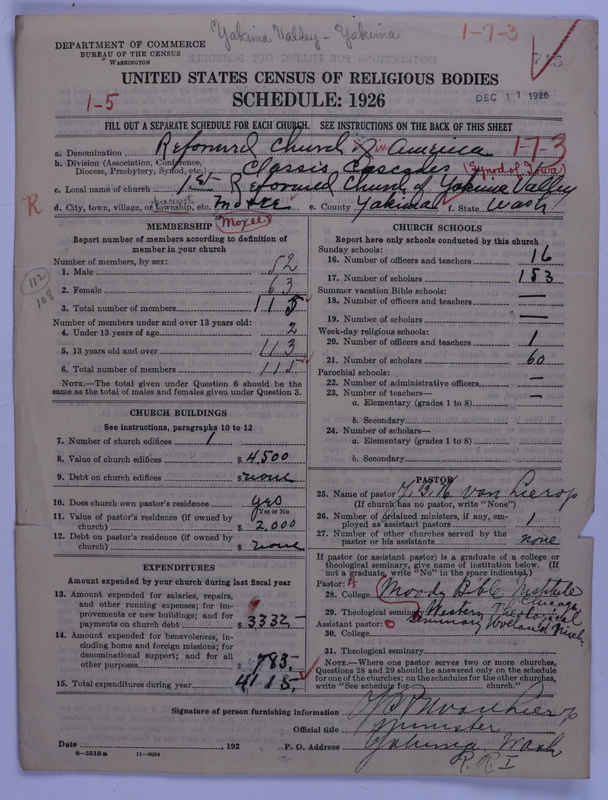 Yakima Valley - Yakima
1-7-3
DEPARTMENT OF COMMERCE
BUREAU OF THE CENSUS
WASHINGTON
UNITED STATES CENSUS OF RELIGIOUS BODIES
SCHEDULE: 1926
DEC 11 1926
1-5
FILL OUT A SEPARATE SCHEDULE FOR EACH CHURCH. SEE INSTRUCTIONS ON THE BACK OF THIS SHEET
a. Denomination Reformed Church in America 1-7-3
b. Division (Association, Conference, Diocese, Presbytery, Synod, etc.) Classis Cascades (Synod of Iowa)
c. Local name of church 1st Reformed Church of Yakima Valley
R
d. City, town, village, or township, etc. e. County Yakima f. State Wash
(Moxee)
MEMBERSHIP
Report number of members according to definition of
member in your church
Number of members, by sex:
1. Male 52
2. Female 63
112
108
3. Total number of members 115
Number of members under and over 13 years old:
4. Under 13 years of age 2
5. 13 years old and over 113
6. Total number of members 115
NOTE.—The total given under Question 6 should be the
same as the total of males and females given under Question 3.
CHURCH BUILDINGS
See instructions, paragraphs 10 to 12
7. Number of church edifices 1
8. Value of church edifices $ 4,500
9. Debt on church edifices $ none
10. Does church own pastor's residence yes
Yes or No
11. Value of pastor's residence (if owned by
church) $ 2,000
12. Debt on pastor's residence (if owned by
church) $ none
EXPENDITURES
Amount expended by your church during last fiscal year
13. Amount expended for salaries, repairs,
and other running expenses; for im-
provements or new buildings; and for
payments on church debt $ 3332-
14. Amount expended for benevolences, in-
cluding home and foreign missions; for
denominational support; and for all
other purposes $ 783-
15. Total expenditures during year 4115-
CHURCH SCHOOLS
Report here only schools conducted by this church
Sunday schools:
16. Number of officers and teachers 16
17. Number of scholars 153
Summer vacation Bible schools:
18. Number of officers and teachers —
19. Number of scholars —
Week-day religious schools:
20. Number of officers and teachers 1
21. Number of scholars 60
Parochial schools:
22. Number of administrative officers —
23. Number of teachers— —
a. Elementary (grades 1 to 8)
b. Secondary
24. Number of scholars—
a. Elementary (grades 1 to 8)
b. Secondary
PASTOR
25. Name of pastor van Lierop
(If church has no pastor, write "None")
26. Number of ordained ministers, if any, em-
ployed as assistant pastors 1
27. Number of other churches served by the
pastor or his assistants none
If pastor (or assistant pastor) is a graduate of a college or
theological seminary, give name of institution below. (If
not a graduate, write "No" in the space indicated.)
Pastor:
28. College Moody Bible Institute
Chicago
29. Theological seminary Western Theological
Assistant pastor: Seminary Holland Mich.
30. College
31. Theological seminary
NOTE.—Where one pastor serves two or more churches,
Questions 28 and 29 should be answered only on the schedule
for one of the churches; on the schedules for the other churches,
write "See schedule for church."
Signature of person furnishing information van Lierop
Official title Minister
Date , 192 P. O. Address Yakima Wash
8-5519a 11-9064 R. R. I